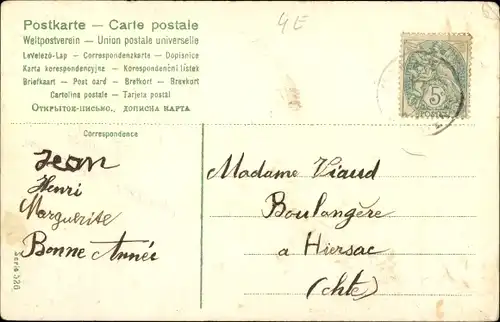 Postkarte — Carte postale
Weltpostverein — Union postale universelle
Levelező-Lap — Correspondenzkarte — Dopisnice
Karta korespondencyjna — Korespondenční lístek
Briefkaart — Post card — Brefkort — Brevkort
Cartolina postale — Tarjeta postal
Открытое-письмо. дописна карта
4E
5c
POSTES
Correspondence
Jean
Henri
Marguerite
Bonne Année
Serie 526
Madame Viaud
Boulangère
a Hiersac
(chte)